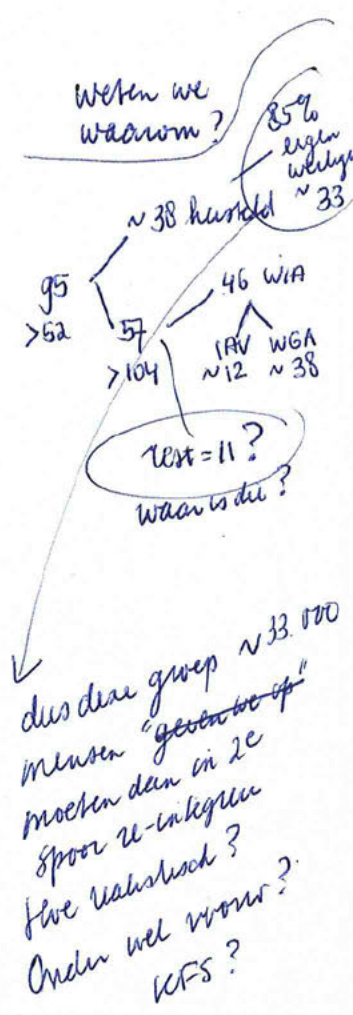 weten we
waarom?
85%
eigen
werkge
~ 33
~ 38 hersteld
95
>52
57
>104
46 WIA
IAV WGA
~12 ~38
rest = 11?
waar is die?
dus deze groep ~ 33.000
mensen "geven we op"
moeten dan in 2e
spoor re-integren
Hoe realistisch?
Onder wel vrouw?
KFS?